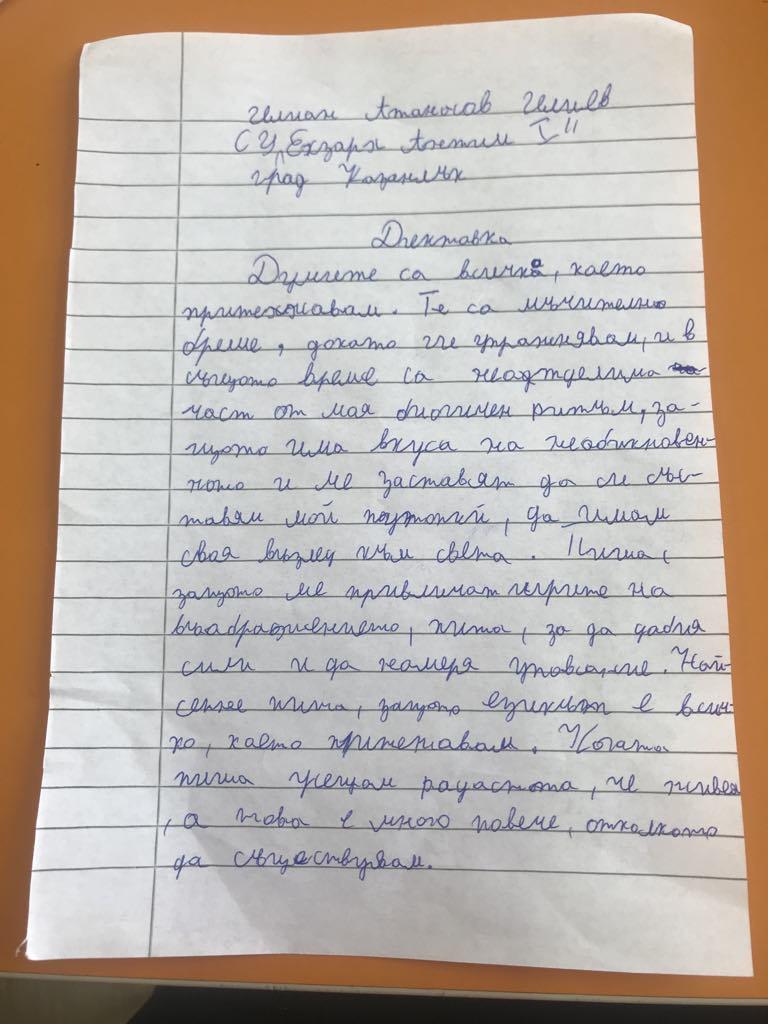 Илиан Атанасав Илиев
СУ „Екзарх Антим I"
град Казанлък
Диктавка
Думите са всичка, каето
притежавам. Те са мъчително
бреме, докато ги упражнявам, и в
същото време са неадтделима
част от мая биогичен ритъм, за-
щото има вкуса на необикновен-
ното и ме заставят да си със-
тавям мой , да имам
свая възлед към света. Пиша,
защото ме привличат игрите на
въабражението, пиша, за да дабия
сили и да намеря упование. Най-
сетне пиша, защото езикът е всич-
ко, каето притежавам. Когато
пиша усещам радастта, че живея
, а това е много повече, отколкото
да съществувам.